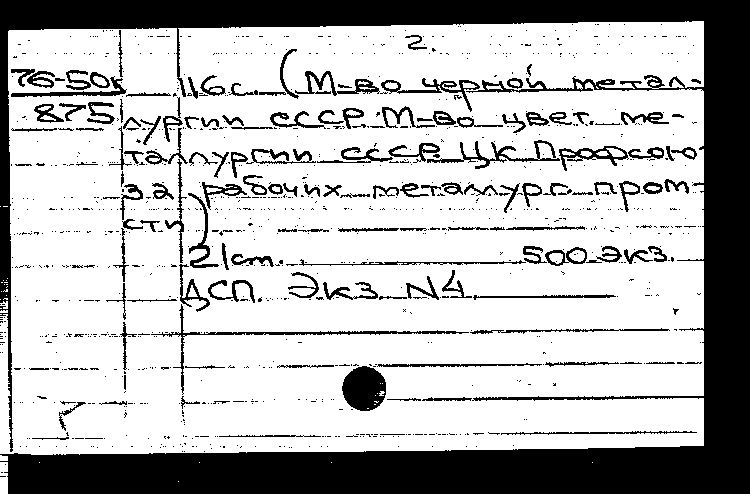 2.
76-50к 116с. (М-во черной метал-
875 лургии СССР. М-во цвет. ме-
таллургии СССР. ЦК Профсою-
за рабочих металлург. пром-
сти).
21cm. 500 экз.
ДСП. Экз. N4.